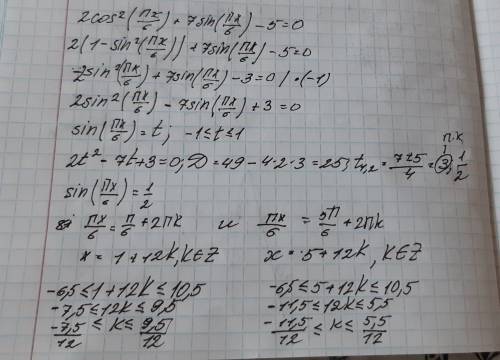 2cos²(πx/6) + 7sin(πx/6) - 5 = 0
2(1 - sin²(πx/6)) + 7sin(πx/6) - 5 = 0
-2sin²(πx/6) + 7sin(πx/6) - 3 = 0 / ·(-1)
2sin²(πx/6) - 7sin(πx/6) + 3 = 0
sin(πx/6) = t; -1 ≤ t ≤ 1
п.к
2t² - 7t + 3 = 0; D = 49 - 4·2·3 = 25; t₁,₂ = (7±5)/4 = 3; 1/2
sin(πx/6) = 1/2
πx/6 = π/6 + 2πk и πx/6 = 5π/6 + 2πk
x = 1 + 12k, k∈Z x = 5 + 12k, k∈Z
-6,5 ≤ 1 + 12k ≤ 10,5 -6,5 ≤ 5 + 12k ≤ 10,5
-7,5 ≤ 12k ≤ 9,5 -11,5 ≤ 12k ≤ 5,5
-7,5/12 ≤ k ≤ 9,5/12 -11,5/12 ≤ k ≤ 5,5/12